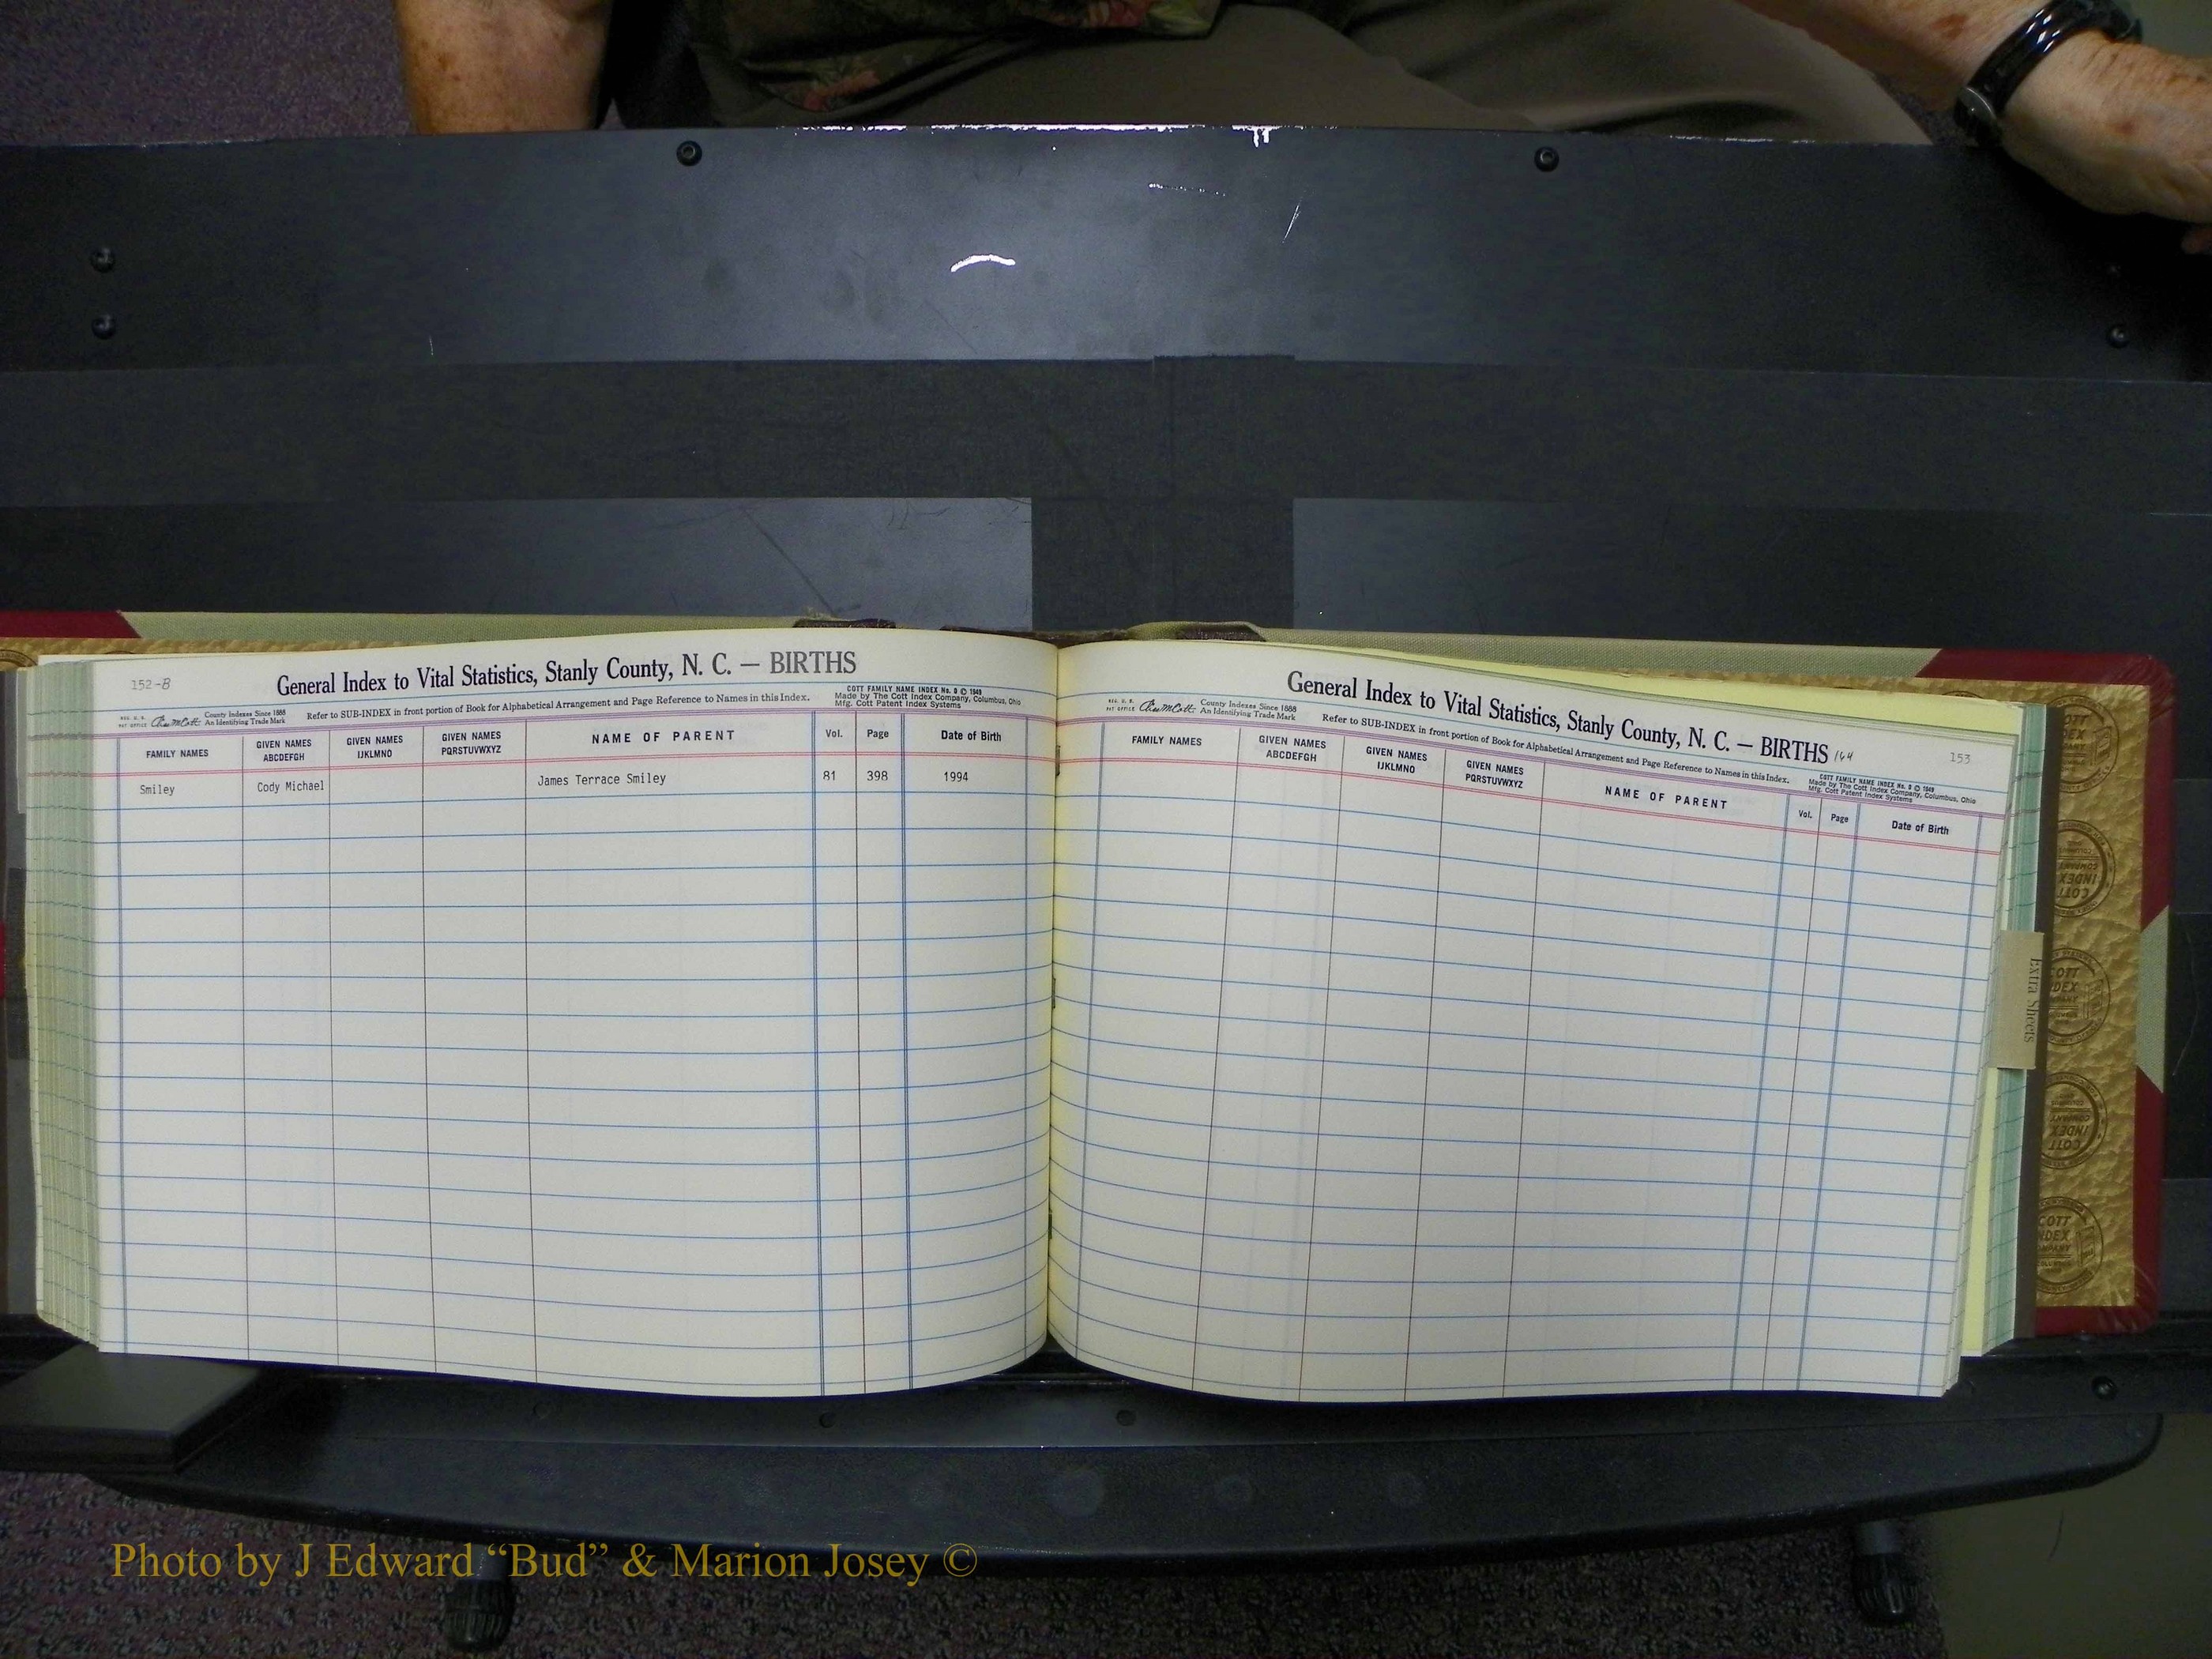 152-B
General Index to Vital Statistics, Stanly County, N. C. — BIRTHS
REG. U. S. PAT OFFICE
County Indexes Since 1888
An Identifying Trade Mark
Refer to SUB-INDEX in front portion of Book for Alphabetical Arrangement and Page Reference to Names in this Index.
COTT FAMILY NAME INDEX No. 8 © 1949
Made by The Cott Index Company, Columbus, Ohio
Mfg. Cott Patent Index Systems
FAMILY NAMES GIVEN NAMES ABCDEFGH GIVEN NAMES IJKLMNO GIVEN NAMES PQRSTUVWXYZ NAME OF PARENT Vol. Page Date of Birth
Smiley Cody Michael James Terrace Smiley 81 398 1994
General Index to Vital Statistics, Stanly County, N. C. — BIRTHS 164
153
REG. U. S. PAT OFFICE
County Indexes Since 1888
An Identifying Trade Mark
Refer to SUB-INDEX in front portion of Book for Alphabetical Arrangement and Page Reference to Names in this Index.
COTT FAMILY NAME INDEX No. 8 © 1949
Made by The Cott Index Company, Columbus, Ohio
Mfg. Cott Patent Index Systems
FAMILY NAMES GIVEN NAMES ABCDEFGH GIVEN NAMES IJKLMNO GIVEN NAMES PQRSTUVWXYZ NAME OF PARENT Vol. Page Date of Birth
Extra Sheets
COTT
INDEX
COMPANY
Photo by J Edward “Bud” & Marion Josey ©